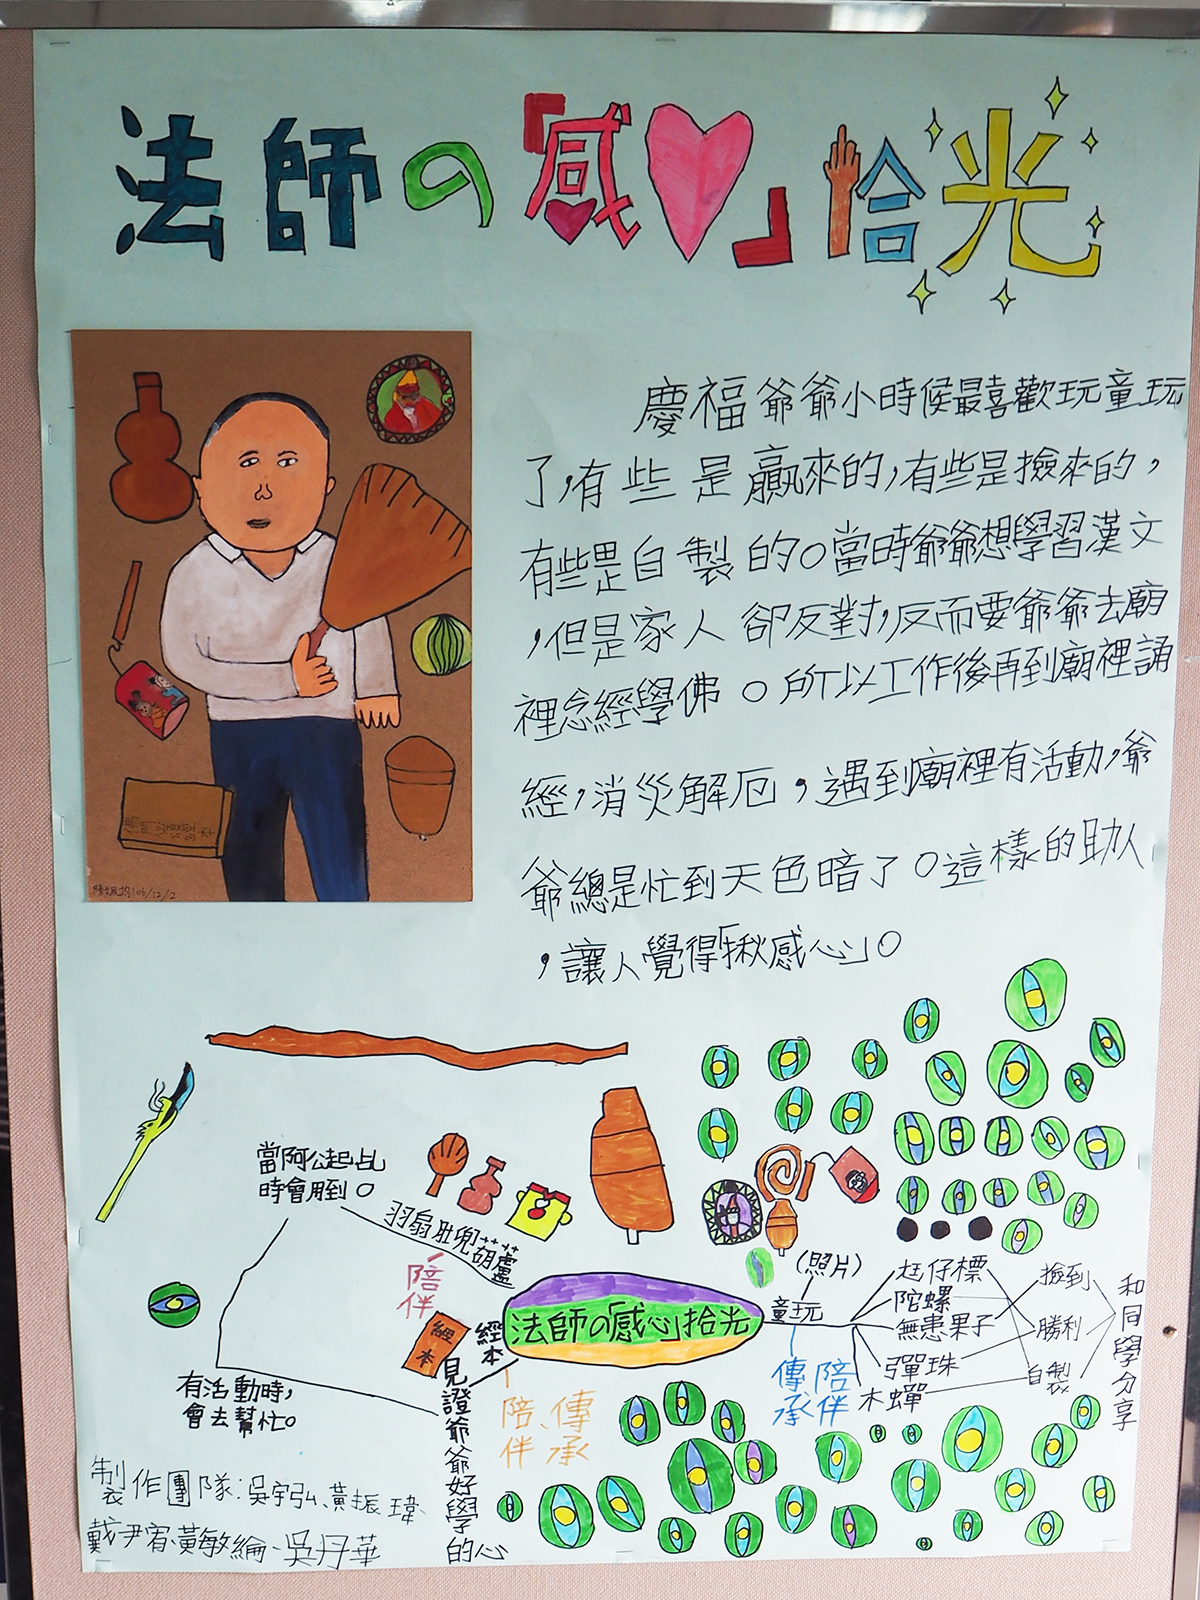 法師の「感♥」拾光
慶福爺爺小時候最喜歡玩童玩
了,有些是贏來的,有些是撿來的,
有些是自製的。當時爺爺想學習漢文
,但是家人卻反對,反而要爺爺去廟
裡念經學佛。所以工作後再到廟裡誦
經,消災解厄,遇到廟裡有活動,爺
爺總是忙到天色暗了。這樣的助人
,讓人覺得「揪感心」。
106/12/12
當阿公起乩
時會用到。
羽扇肚兜葫蘆
陪伴
經本
經本
法師の「感心」拾光
(照片)
童玩
尪仔標
陀螺
無患果子
彈珠
木蟬
撿到
勝利
自製
和同學分享
傳承
陪伴
有活動時,
會去幫忙。
見證爺爺好學的心
陪伴、
傳承
製作團隊:吳宇弘、黃振瑋、
戴尹宥、黃敏綸、吳丹華